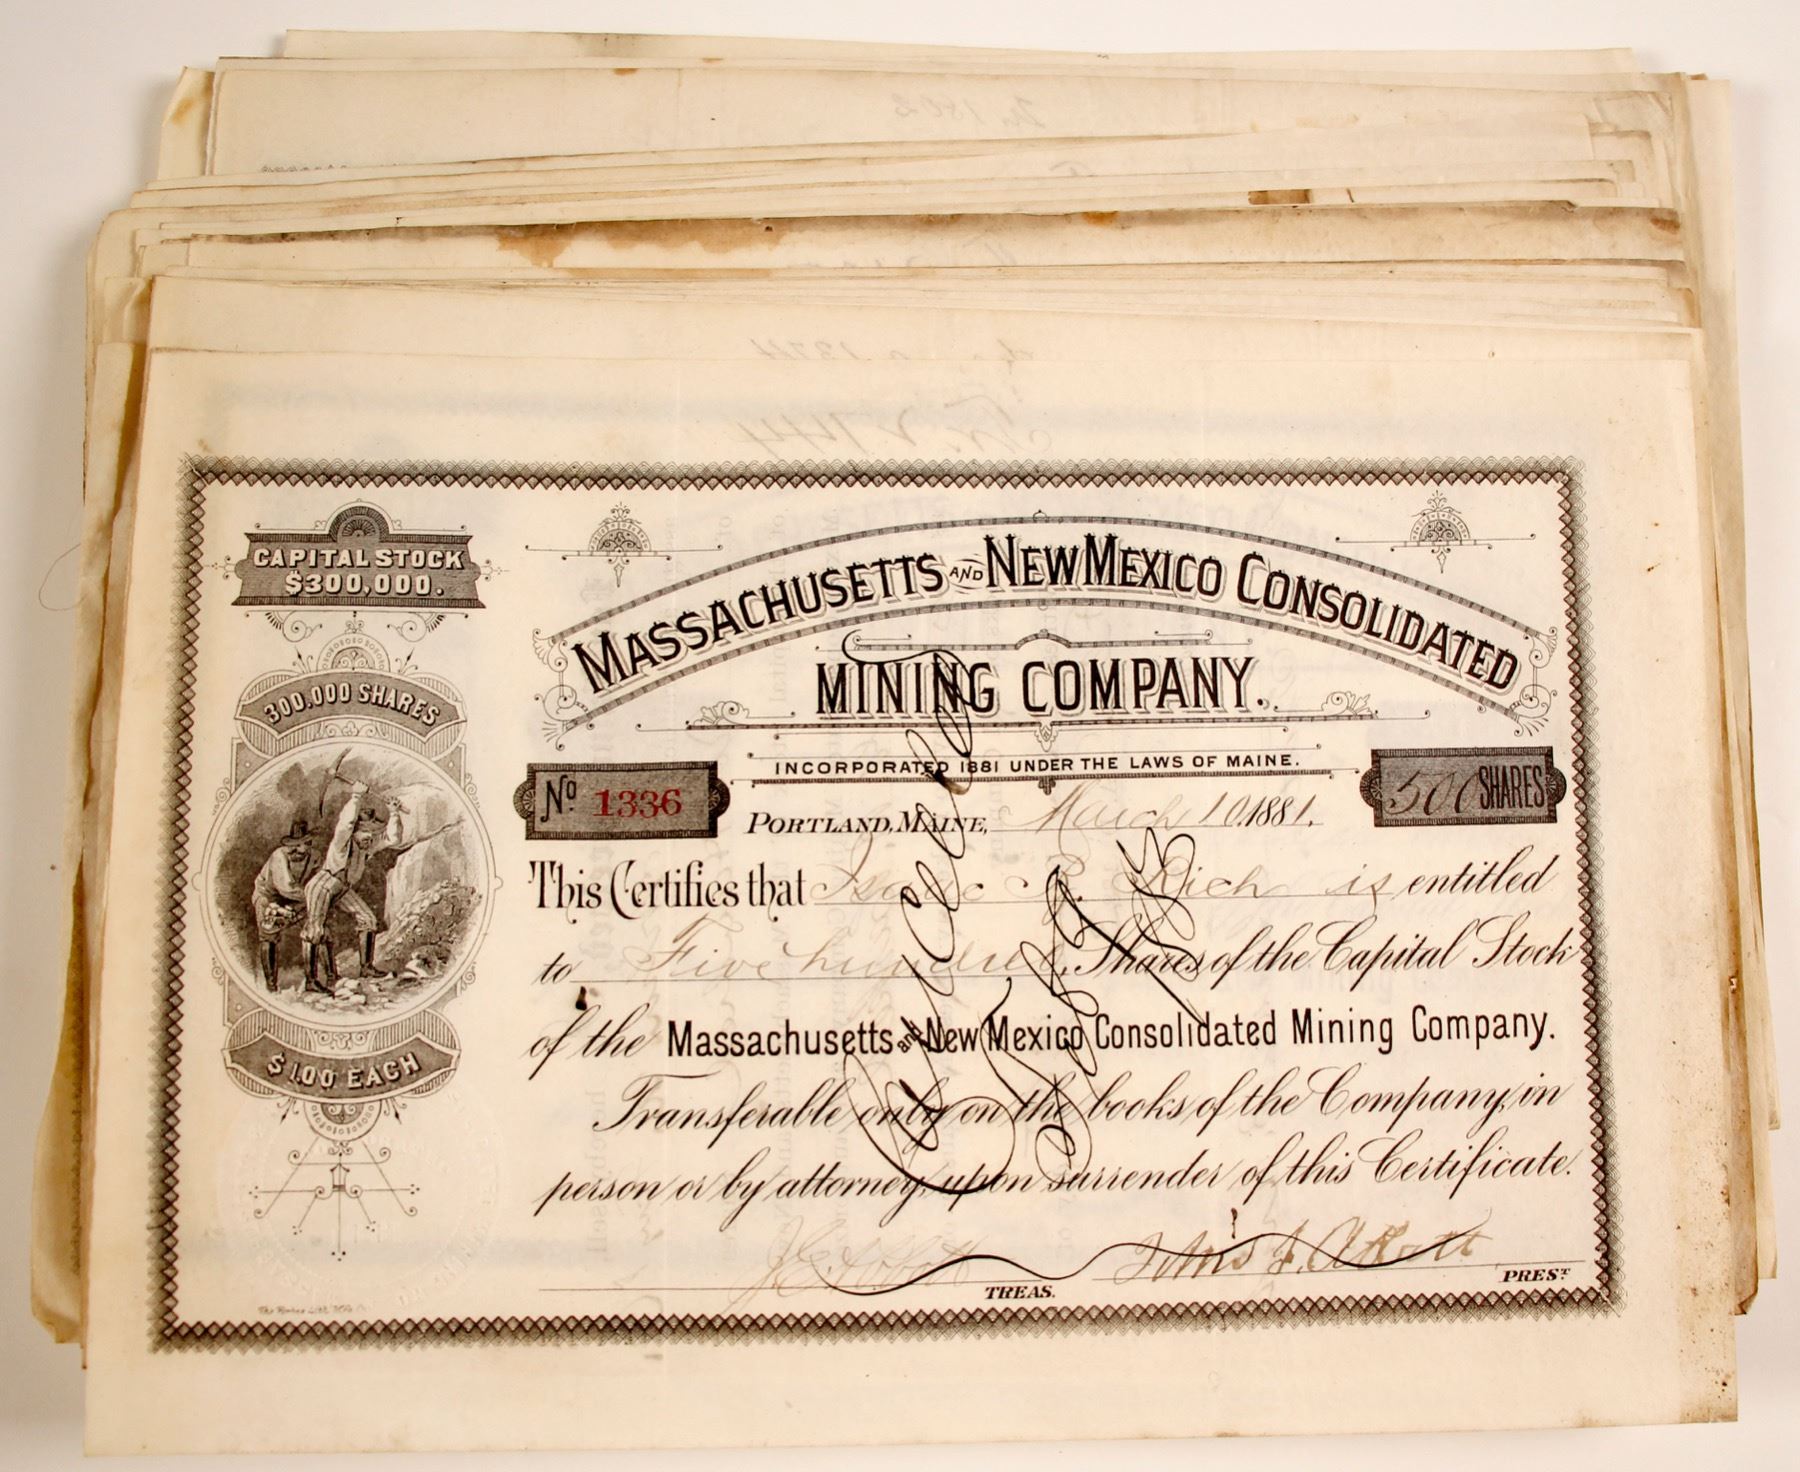 CAPITAL STOCK
$300,000.
300,000 SHARES
$1.00 EACH
MASSACHUSETTS AND NEW MEXICO CONSOLIDATED
MINING COMPANY.
INCORPORATED 1881 UNDER THE LAWS OF MAINE.
No 1336
500 SHARES
PORTLAND, MAINE, March 10 1881.
This Certifies that Isaac B. Rich is entitled
to Five hundred Shares of the Capital Stock
of the Massachusetts and New Mexico Consolidated Mining Company.
Transferable only on the books of the Company, in
person or by attorney, upon surrender of this Certificate.
Cancelled
J. C. Abbott TREAS.
Abbott PREST